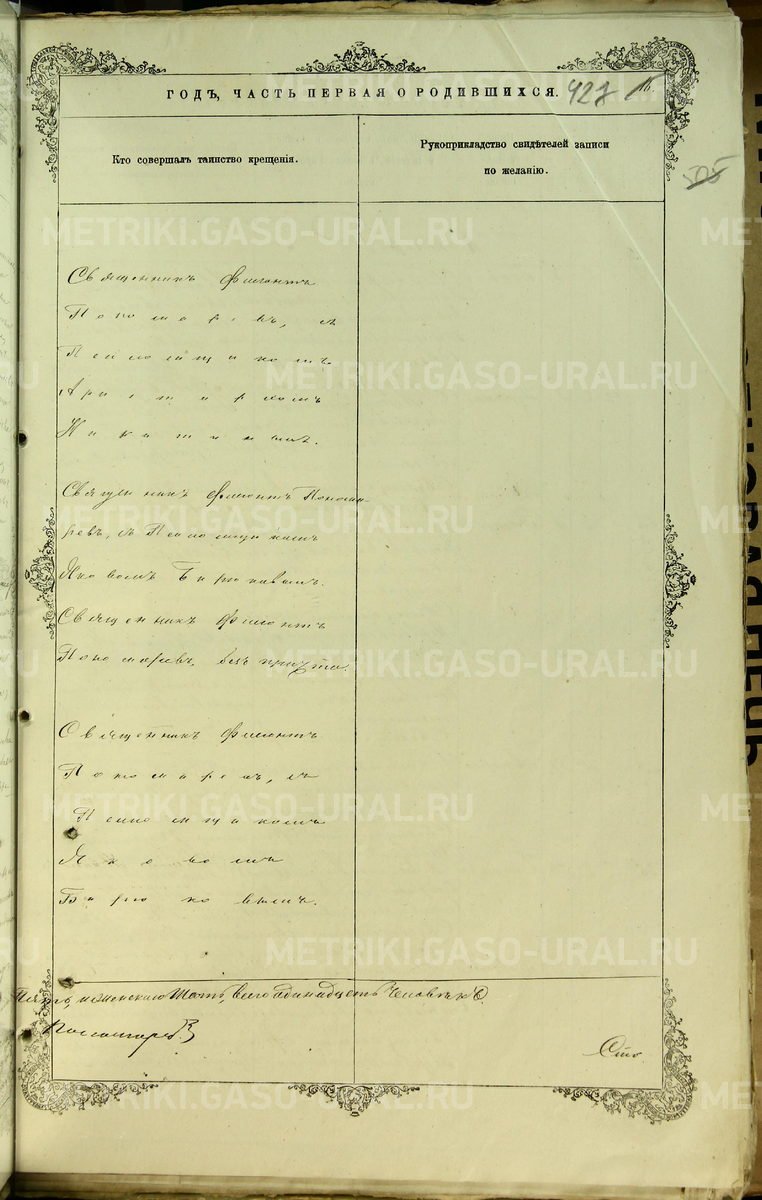 ГОДЪ, ЧАСТЬ ПЕРВАЯ О РОДИВШИХСЯ. 427 16.
Кто совершалъ таинство крещенія.
Рукоприкладство свидѣтелей записи
по желанію.
505
METRIKI.GASO-URAL.RU
Священникъ
Пономаревъ, съ
Псаломщикомъ
Никитинымъ.
Священникъ Понома-
ревъ, съ Псаломщикомъ
Яковомъ Бирюковымъ.
Священникъ
Пономаревъ, безъ причта.
Священникъ
Пономаревъ, съ
Псаломщикомъ
Яковомъ
Бирюковымъ.
всего одинадцать человѣкъ.
Пономаревъ